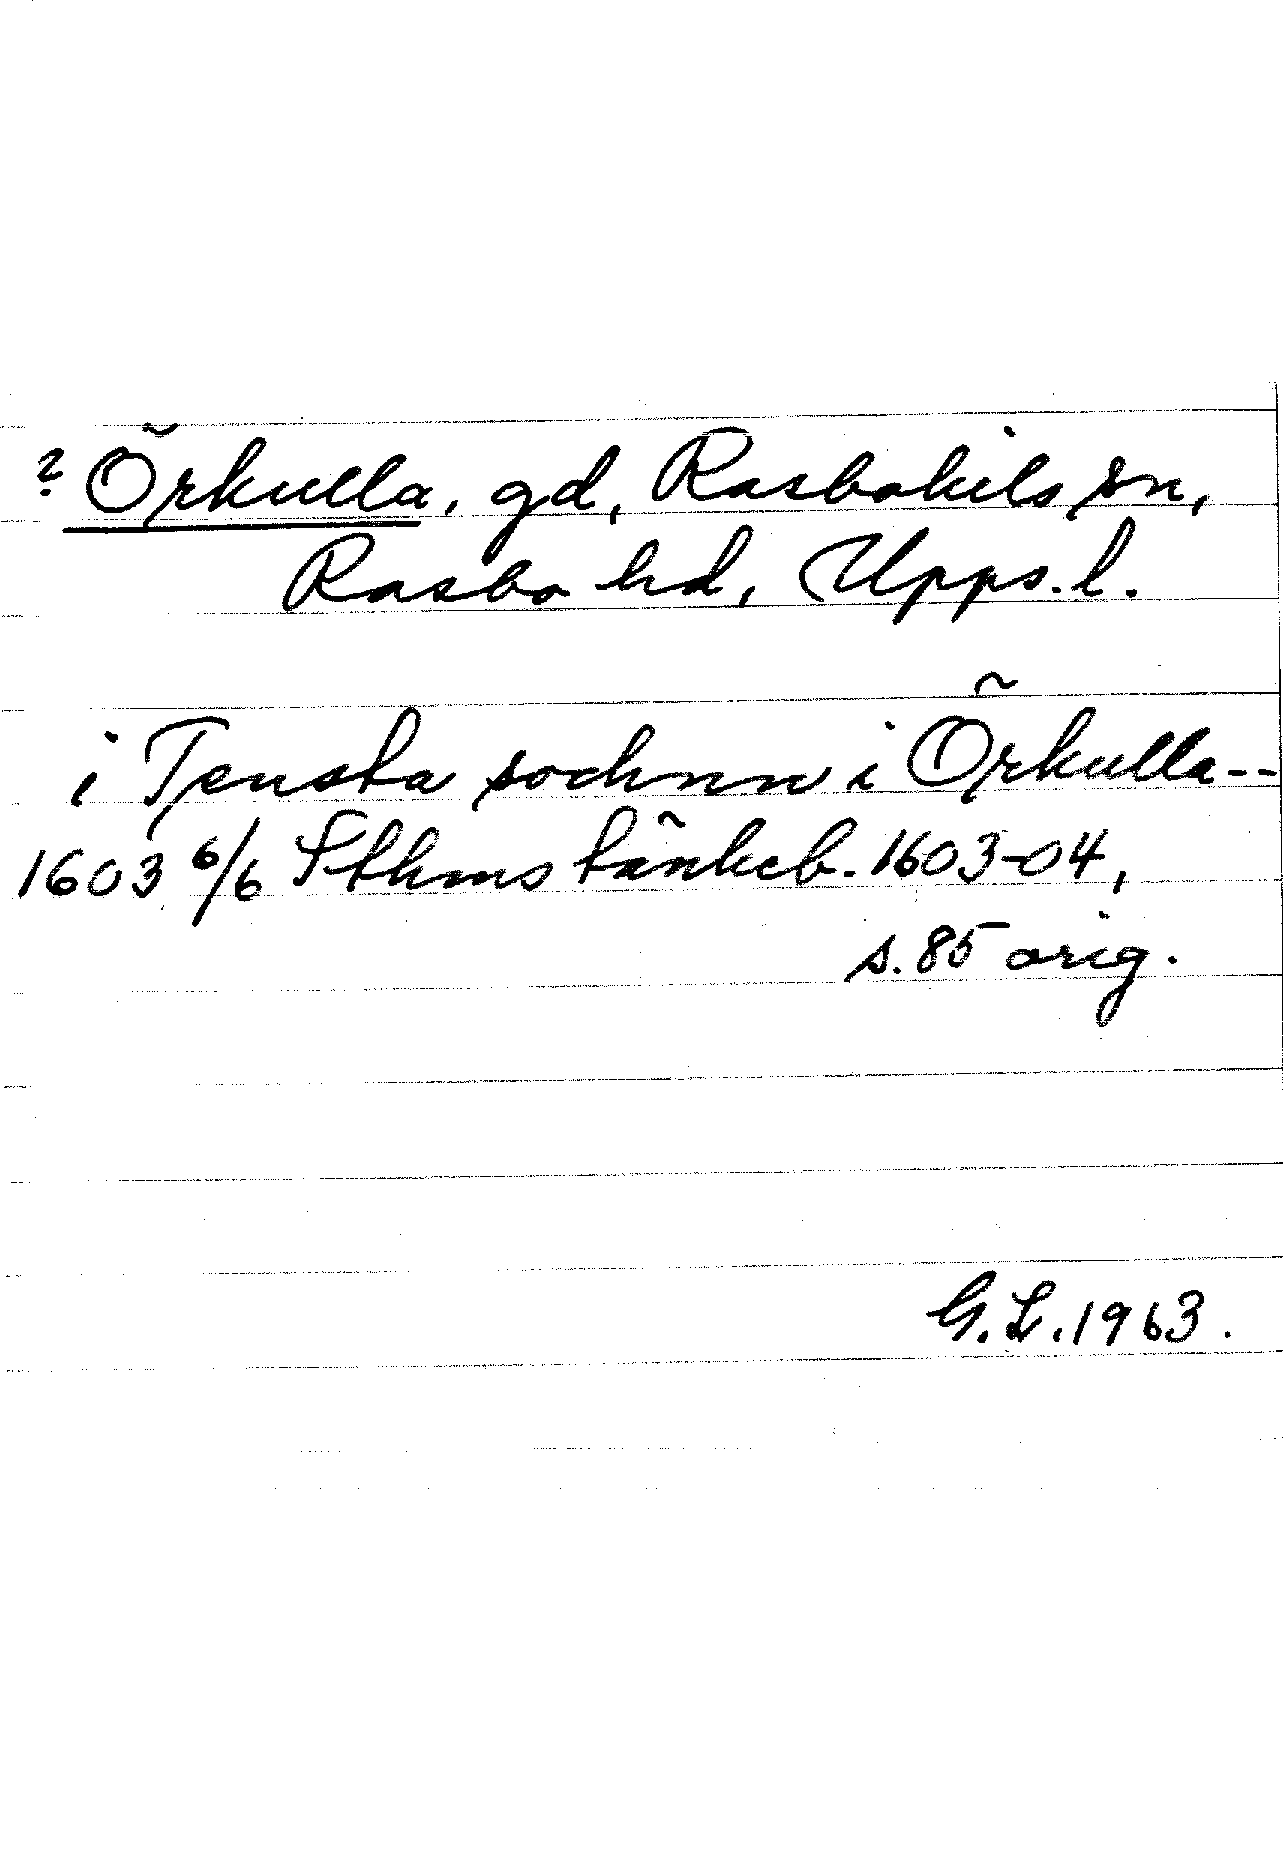 ? Örkulla, gd, Rasbokils sn,
Rasbo hd, Upps. l.
i Tensta sochnn i Örkulla--
1603 6/6 Sthms tänkeb. 1603-04,
s. 85 orig.
G. L. 1963.